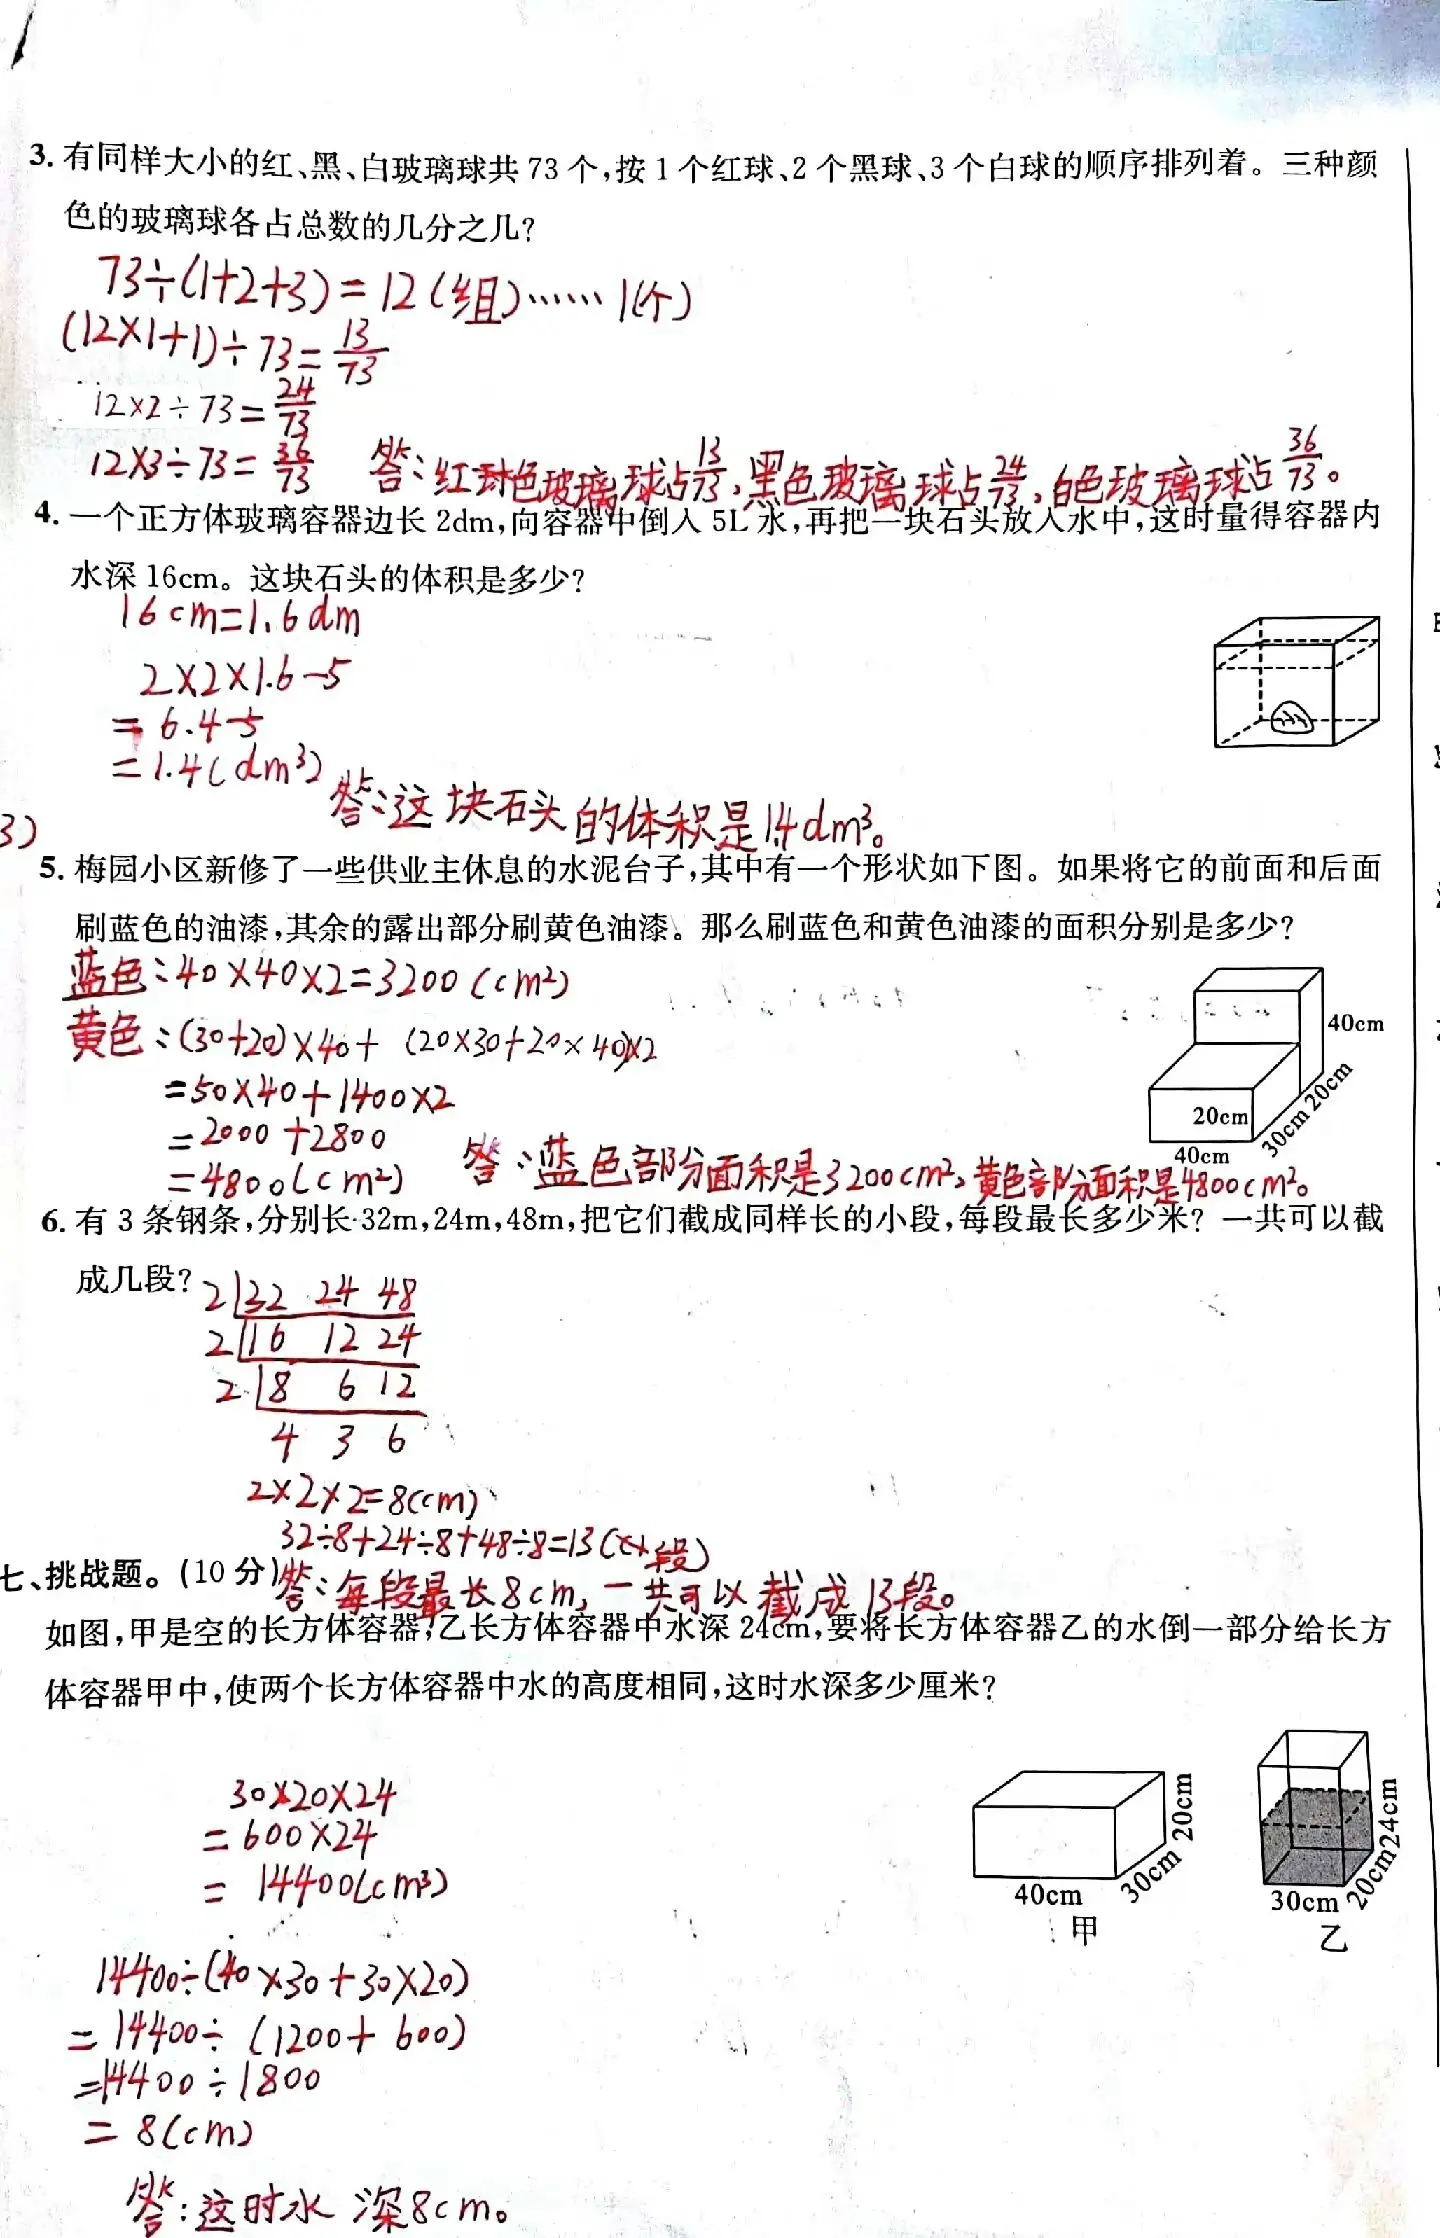 3. 有同样大小的红、黑、白玻璃球共 73 个,按 1 个红球、2 个黑球、3 个白球的顺序排列着。三种颜
色的玻璃球各占总数的几分之几?
73÷(1+2+3)=12(组)……1(个)
(12×1+1)÷73=13/73
12×2÷73=24/73
12×3÷73=36/73
答:红球色玻璃球占13/73,黑色玻璃球占24/73,白色玻璃球占36/73。
4. 一个正方体玻璃容器边长 2dm,向容器中倒入 5L 水,再把一块石头放入水中,这时量得容器内
水深 16cm。这块石头的体积是多少?
16cm=1.6dm
2×2×1.6-5
=6.4-5
=1.4(dm³)
答:这块石头的体积是1.4dm³。
3)
5. 梅园小区新修了一些供业主休息的水泥台子,其中有一个形状如下图。如果将它的前面和后面
刷蓝色的油漆,其余的露出部分刷黄色油漆。那么刷蓝色和黄色油漆的面积分别是多少?
蓝色:40×40×2=3200(cm²)
黄色:(30+20)×40+(20×30+20×40)×2
=50×40+1400×2
=2000+2800
=4800(cm²)
答:蓝色部分面积是3200cm²,黄色部分面积是4800cm²。
40cm
20cm
40cm
30cm
20cm
6. 有 3 条钢条,分别长 32m,24m,48m,把它们截成同样长的小段,每段最长多少米?一共可以截
成几段?
2 32 24 48
2 16 12 24
2 8 6 12
4 3 6
2×2×2=8(cm)
32÷8+24÷8+48÷8=13(段)
答:每段最长8cm,一共可以截成13段。
七、挑战题。(10 分)
如图,甲是空的长方体容器,乙长方体容器中水深 24cm,要将长方体容器乙的水倒一部分给长方
体容器甲中,使两个长方体容器中水的高度相同,这时水深多少厘米?
30×20×24
=600×24
=14400(cm³)
14400÷(40×30+30×20)
=14400÷(1200+600)
=14400÷1800
=8(cm)
答:这时水深8cm。
40cm
30cm
20cm
甲
30cm
20cm
24cm
乙